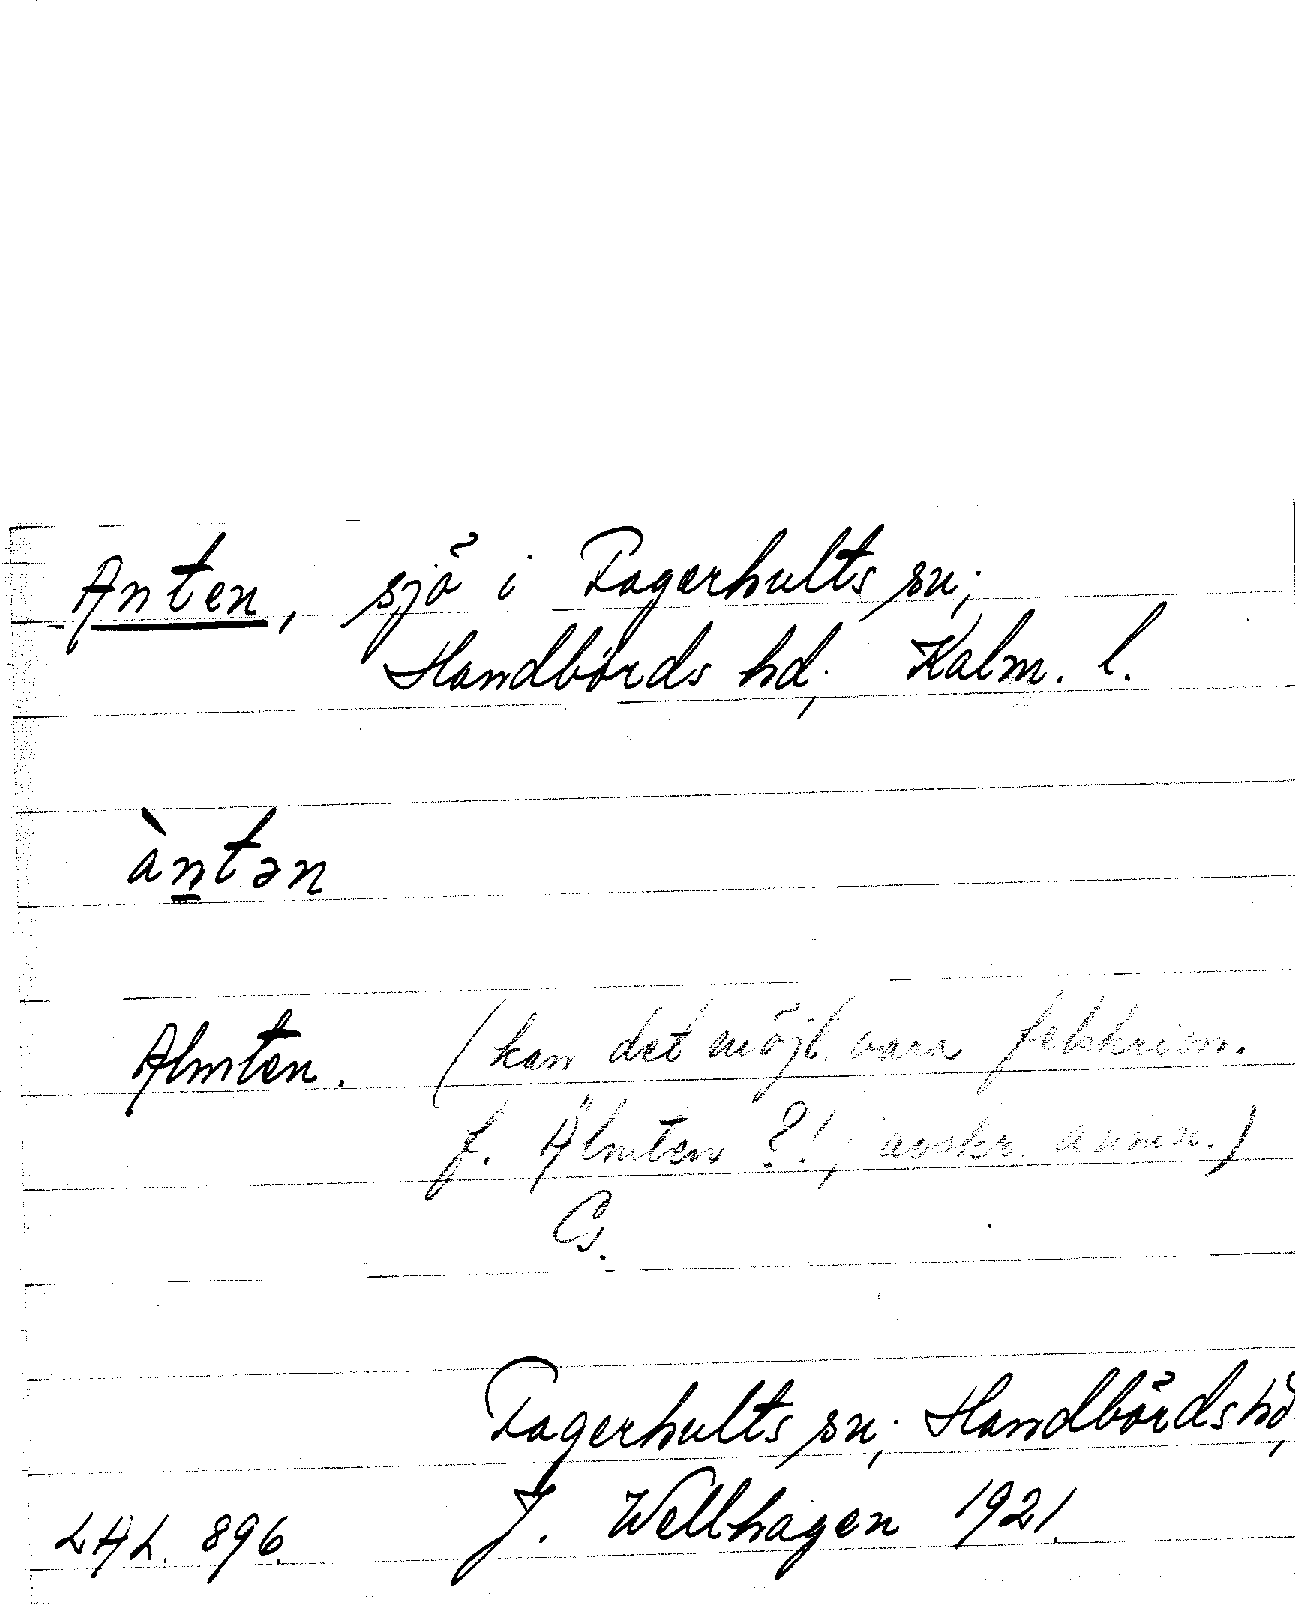 Anten, sjö i Fagerhults sn,
Handbörds hd, Kalm. l.
àntən
Almten. (kan det möjl. vara felskrivn.
f. Älmten ?!, avskr. anm.)
Cs.
Fagerhults sn, Handbörds hd,
LAL. 896. J. Wellhagen 1921.